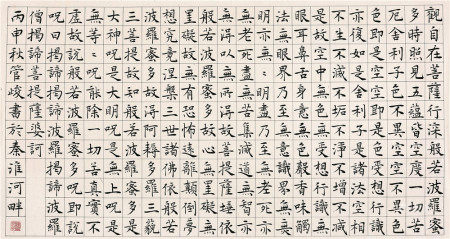 觀自在菩薩行深般若波羅蜜
多時照見五蘊皆空度一切苦
厄舍利子色不異空空不異色
色即是空空即是色受想行識
亦復如是舍利子是諸法空相
不生不滅不垢不淨不增不減
是故空中無色無受想行識無
眼耳鼻舌身意無色聲香味觸
法無眼界乃至無意識界無無
明亦無〻明盡乃至無老死亦
無老死盡無苦集滅道無智亦
無得以無所得故菩提薩埵依
般若波羅蜜多故心無罣礙無
罣礙故無有恐怖遠離顛倒夢
想究竟涅槃三世諸佛依般若
波羅蜜多故得阿耨多羅三藐
三菩提故知般若波羅蜜多是
大神呪是大明呪是無上呪是
無等〻呪能除一切苦真實不
虛故說般若波羅蜜多呪即說
呪曰揭諦揭諦波羅揭諦波羅
僧揭諦菩提薩婆訶
丙申秋管峻書於秦淮河畔